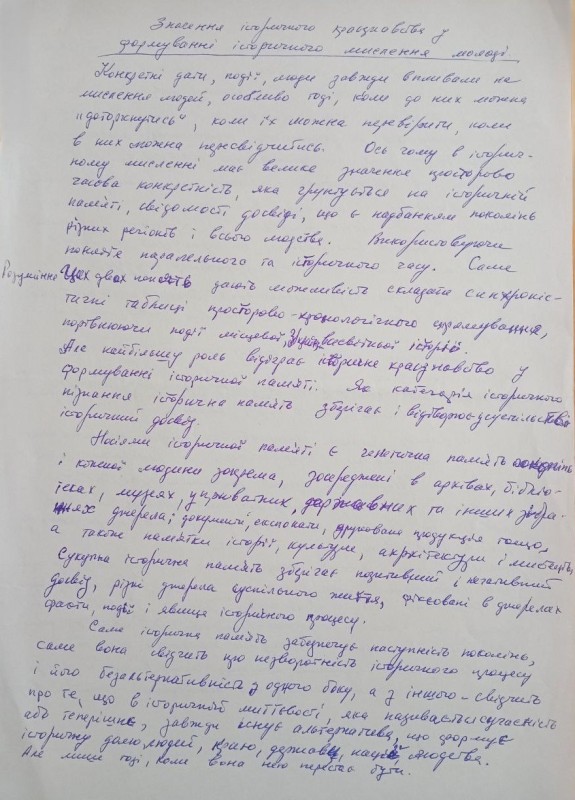 Значення історичного краєзнавства у
формуванні історичного мислення молоді.
Конкретні дати, події, люди завжди впливали на
мислення людей, особливо тоді, коли до них можна
"доторкнутись", коли їх можна перевірити, коли
в них можна пересвідчитись. Ось чому в історич-
ному мисленні має велике значення просторово
часова конкретність, яка грунтується на історичній
пам'яті, свідомості досвіді, що є надбанням поколінь
різних регіонів і всього людства. Використовуючи
поняття паралельного та історичного часу. Саме
Розуміння цих двох понять дають можливість складати синхроніс-
тичні таблиці просторово-хронологічного спрямування,
порівнюючи події місцевої, з всесвітньої історії.
Але найбільшу роль відіграє історичне краєзнавство у
формуванні історичної пам'яті. Як категорія історичного
пізнання історична память зберігає і відтворює
історичний досвід.
Носіями історичної памяті є генетична память
і кожної людини зокрема, зосереджені в архівах, бібліо-
теках, музеях, у приватних, державних та інших зібра-
ннях джерела; документи, експонати, друкована продукція тощо,
а також памятки історії, культури, архітектури і мистецтв.
Сукупна історична память зберігає позитивний і негативний
досвід, різні джерела суспільного життя, фіксовані в джерелах
факти, події і явища історичного процесу.
Саме історична память забезпечує наступність поколінь,
саме вона свідчить про незворотність історичного процесу
і його безальтернативність з одного боку, а з іншого - свідчить
про те, що в історичній миттєвості, яка називається сучасність
або теперішнє, завжди існує альтернатива, що формує
історичну долю людей, краю, держави, нації людства.
Але лише тоді, коли вона нею перестає бути.